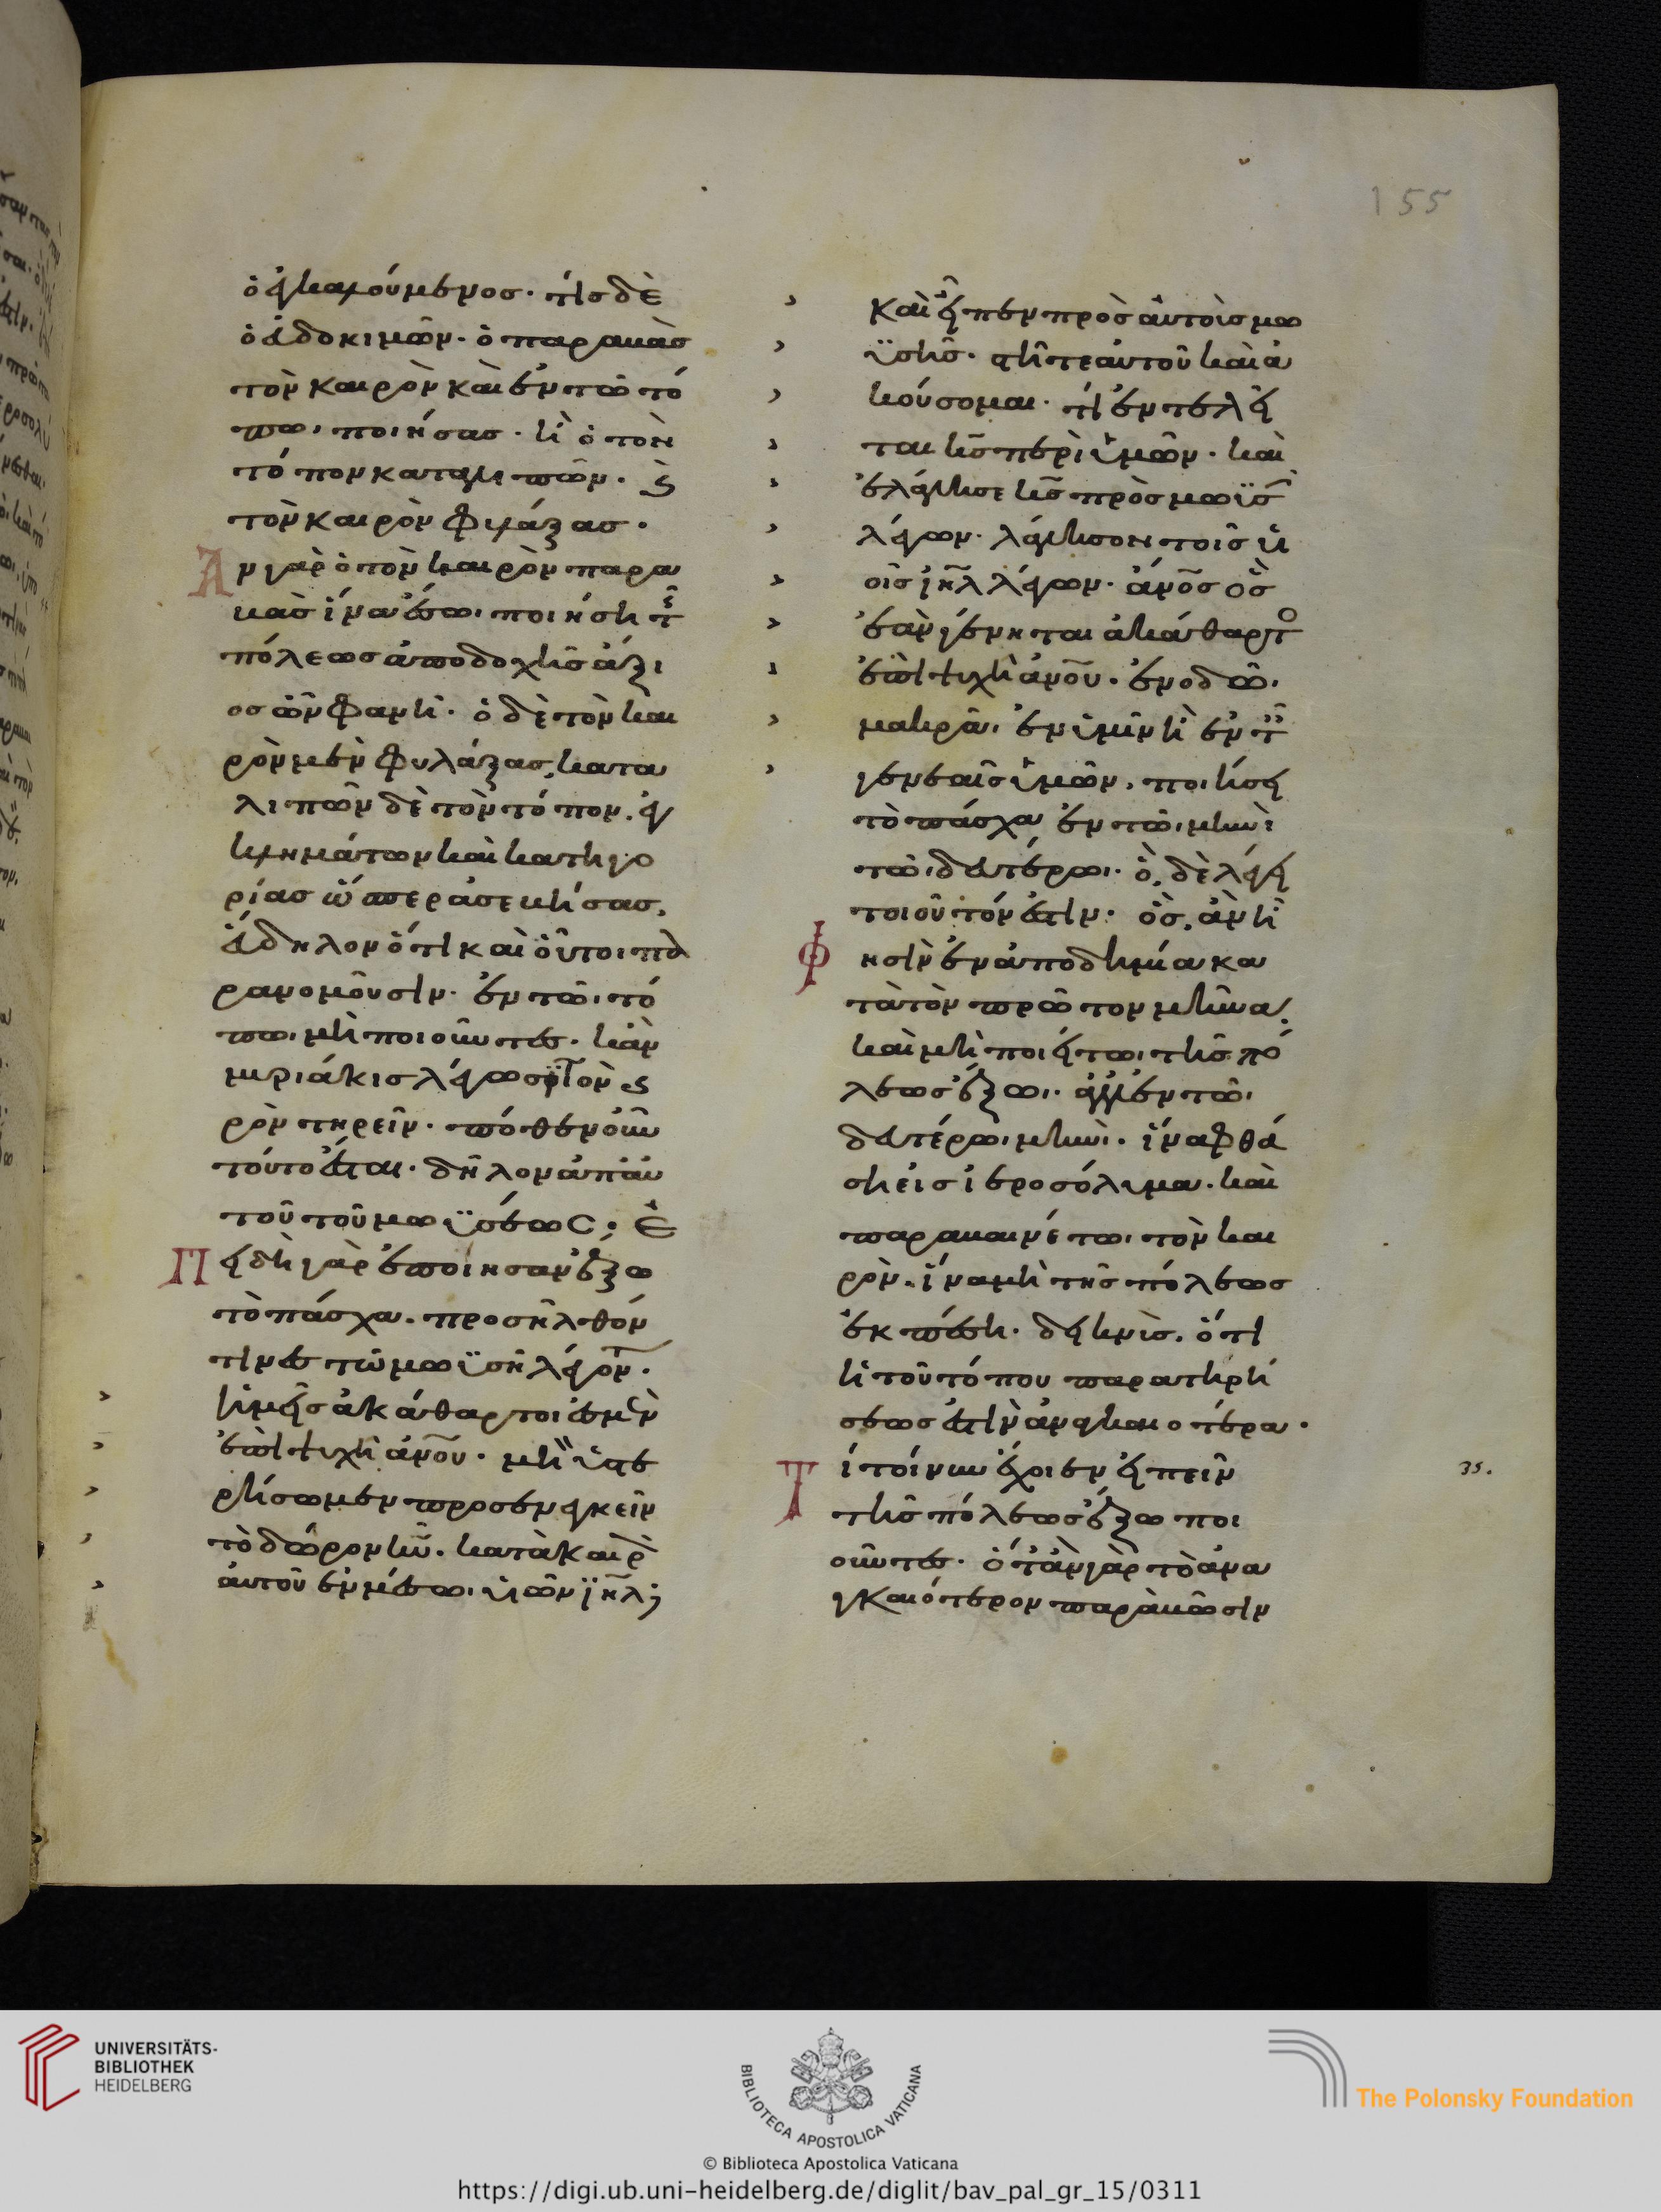 155
ὁ ἐγκαλούμενος· τίς δὲ
ὁ εὐδοκιμῶν· ὁ παραβὰς
τὸν καιρὸν καὶ ἐν τῶ τό
πω, ποιήσας· ἢ ὁ τὸν
τόπον καταλιπὼν· ϗ
τὸν καιρὸν φυλάξας·
Ἂν γὰρ ὁ τὸν καιρὸν παρα
βὰς ἵνα ἔσω, ποιήση τῆς
πόλεως ἀποδοχῆς ἄξι
ος ὢν φανῆ· ὁ δὲ τὸν και
ρὸν μὲν φυλάξας, κατα
λιπὼν δὲ τὸν τόπον, ἐγ
κλημάτων καὶ κατηγο
ρίας ὥσπερ ἀσεβήσας,
εὔδηλον ὅτι καὶ οὗτοι πα
ρανομοῦσιν· ἐν τῶ, τό
πω, μὴ ποιοῦντες· κἂν
μυριάκις λέγωσι τὸν ϗ
ρὸν τηρεῖν· πόθεν οὖν
τοῦτο ἔσται· δῆλον ἀπ' αὐ
τοῦ τοῦ μωϋσέως; Ἐ
Πειδὴ γὰρ ἐποίησαν ἔξω
τὸ πάσχα· προσῆλθόν
τινες τῶ μωϋσῆ λέγον·
ἡμεῖς ἀκάθαρτοι ἐσμὲν
ἐπὶ ψυχῆ ἀνου· μὴ ὑστε
ρήσωμεν προσενεγκεῖν
τὸ δῶρον κῶ· κατὰ καιρ
αὐτοῦ ἐν μέσω, υἱῶν ιηλ;
καὶ εἶπεν πρὸς αὐτοὺς μω
ϋσῆς· στῆτε αὐτοῦ καὶ ἀ
κούσομαι· τί ἐντελεῖ
ται κς περὶ ὑμῶν· καὶ
ἐλάλησε κς πρὸς μωϋσ
λέγων· λάλησον τοῖς υἱ
οῖς ιηλ λέγων· ἀνος ὃς
ἐὰν γένηται ἀκάθαρτο
ἐπὶ ψυχῆ ἀνου· ἐν ὁδῶ,
μακρᾶ, ἐν ὑμῖν ἢ ἐν τ
γενεαῖς ὑμῶν, ποιήσει
τὸ πάσχα ἐν τῶ, μηνὶ
τῶ, δευτέρω,· ὃ, δὲ λέγει
τοιοῦτόν ἐστιν· ὃς, ἂν ἦ
Φησὶν ἐν ἀποδημία κα
τὰ τὸν πρῶτον μῆνα,
καὶ μὴ ποιείτω, τῆς πό
λεως ἔξω,· ἀλλ' ἐν τῶ,
δευτέρω, μηνὶ· ἵνα φθά
ση εἰς ἱεροσόλυμα· καὶ
παραβαινέτω, τὸν και
ρὸν, ἵνα μὴ τῆς πόλεως
ἐκπέση· δεικνὺς, ὅτι
ἡ τοῦ τόπου παρατηρή
σεως ἐστὶν ἀναγκαιοτέρα·
Τί τοίνυν ἔχοιεν εἰπεῖν
τῆς πόλεως ἔξω ποι
οῦντες· ὅταν γὰρ τὸ ἀνα
γκαιότερον παραβῶσιν
35.
UNIVERSITÄTS-
BIBLIOTHEK
HEIDELBERG
BIBLIOTECA APOSTOLICA VATICANA
The Polonsky Foundation
© Biblioteca Apostolica Vaticana
https://digi.ub.uni-heidelberg.de/diglit/bav_pal_gr_15/0311